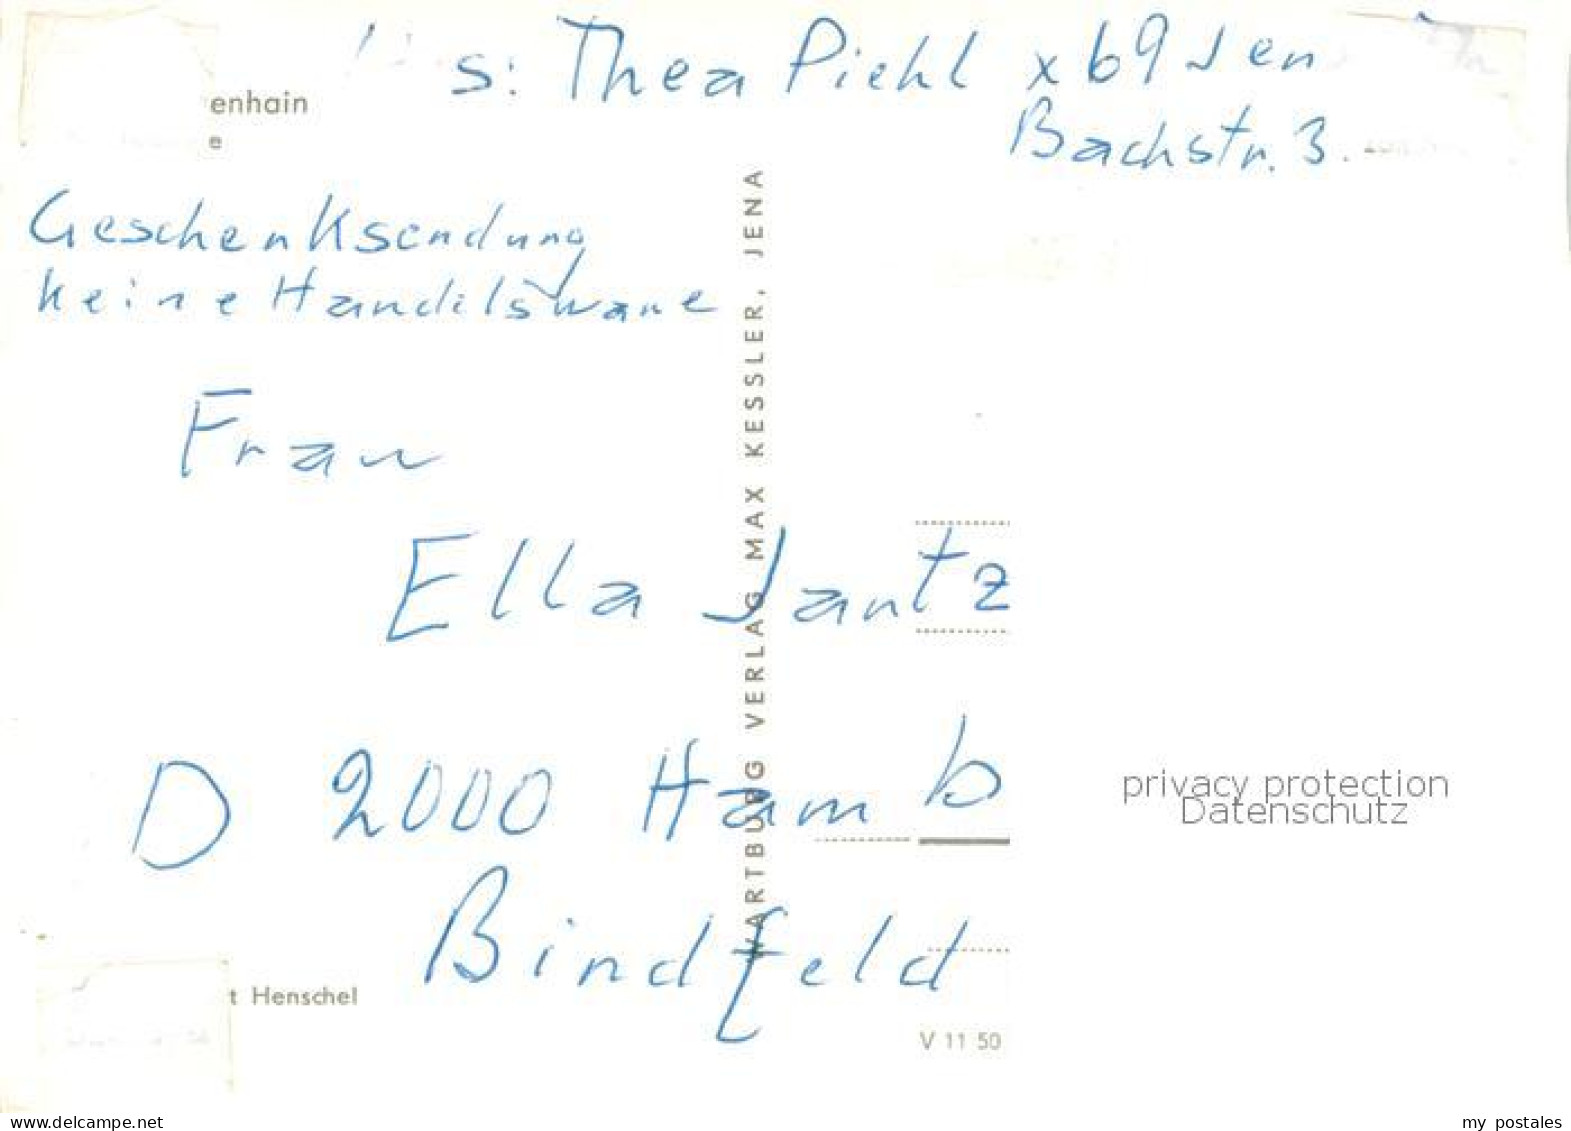 s: Thea Piehl x69 Jen
Bachstr. 3.
enhain
e
Geschenksendung
keine Handelsware
Frau
Ella Jantz
D 2000 Hamb
Bindfeld
WARTBURG VERLAG MAX KESSLER, JENA
t Henschel
V 11 50
privacy protection
Datenschutz
https://www.delcampe.net
my postales